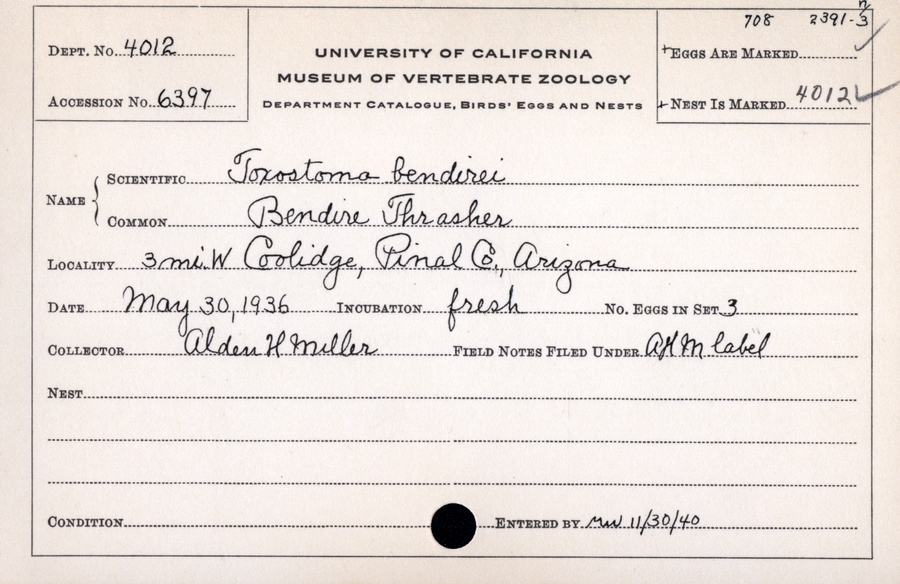 708 2391-3
n
DEPT. NO. 4012
UNIVERSITY OF CALIFORNIA
+EGGS ARE MARKED
MUSEUM OF VERTEBRATE ZOOLOGY
ACCESSION NO. 6397
DEPARTMENT CATALOGUE, BIRDS' EGGS AND NESTS
+ NEST IS MARKED 4012
NAME
SCIENTIFIC Toxostoma bendirei
COMMON Bendire Thrasher
LOCALITY 3 mi. W Coolidge, Pinal Co., Arizona
DATE May 30, 1936 INCUBATION fresh NO. EGGS IN SET 3
COLLECTOR Alden H Miller FIELD NOTES FILED UNDER AHM label
NEST
CONDITION ENTERED BY 11/30/40